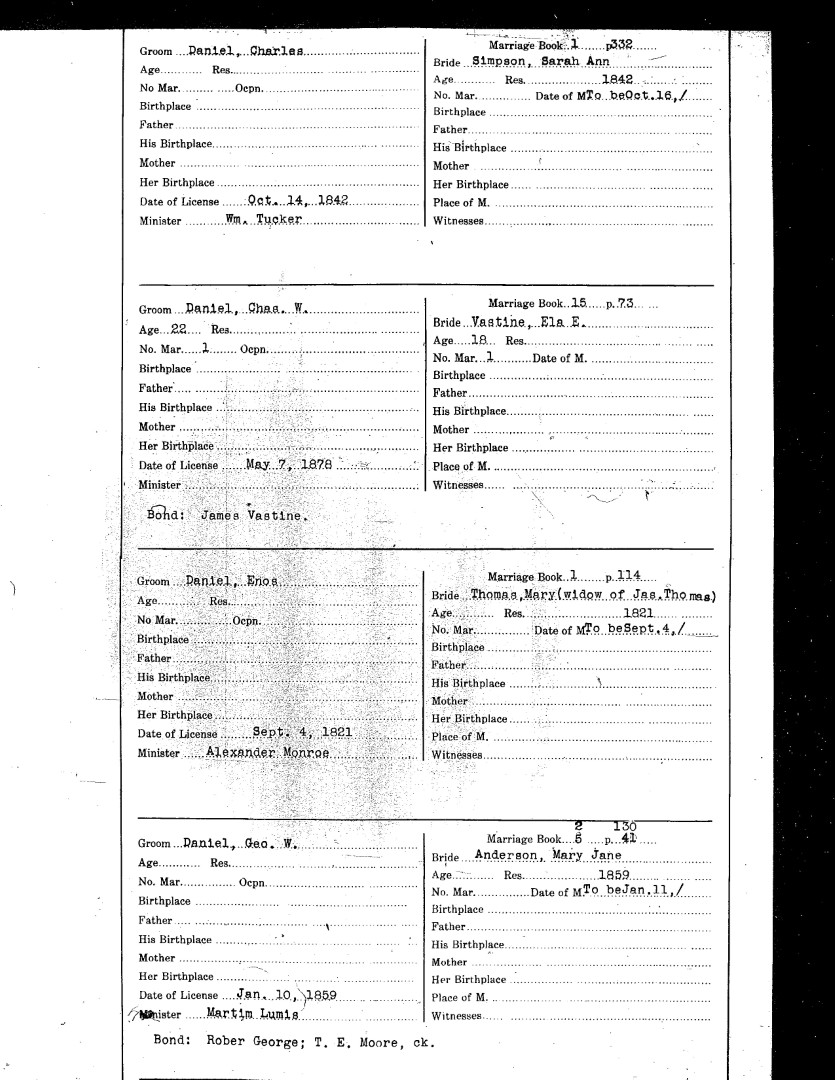 Groom Daniel, Charles
Age Res.
No Mar. Ocpn.
Birthplace
Father
His Birthplace
Mother
Her Birthplace
Date of License Oct. 14, 1842
Minister Wm. Tucker
Marriage Book 1 p332
Bride Simpson, Sarah Ann
Age Res. 1842
No. Mar. Date of MTo beOct.16,/
Birthplace
Father
His Birthplace
Mother
Her Birthplace
Place of M.
Witnesses
Groom Daniel, Chas. W.
Age 22 Res.
No. Mar. 1 Ocpn.
Birthplace
Father
His Birthplace
Mother
Her Birthplace
Date of License May 7, 1878
Minister
Marriage Book 15 p. 73
Bride Vastine, Ela E.
Age 18 Res.
No. Mar. 1 Date of M.
Birthplace
Father
His Birthplace
Mother
Her Birthplace
Place of M.
Witnesses
Bond: James Vastine.
Groom Daniel, Enos
Age Res.
No Mar. Ocpn.
Birthplace
Father
His Birthplace
Mother
Her Birthplace
Date of License Sept. 4, 1821
Minister Alexander Monroe
Marriage Book 1 p. 114
Bride Thomas,Mary(widow of Jas.Thomas)
Age Res. 1821
No. Mar. Date of MTo beSept.4,/
Birthplace
Father
His Birthplace
Mother
Her Birthplace
Place of M.
Witnesses
Groom Daniel, Geo. W.
Age Res.
No. Mar. Ocpn.
Birthplace
Father
His Birthplace
Mother
Her Birthplace
Date of License Jan. 10, 1859
Minister Martim Lumis
2 130
Marriage Book 5 p. 41
Bride Anderson, Mary Jane
Age Res. 1859
No. Mar. Date of M.To beJan.11,/
Birthplace
Father
His Birthplace
Mother
Her Birthplace
Place of M.
Witnesses
Bond: Rober George; T. E. Moore, ck.